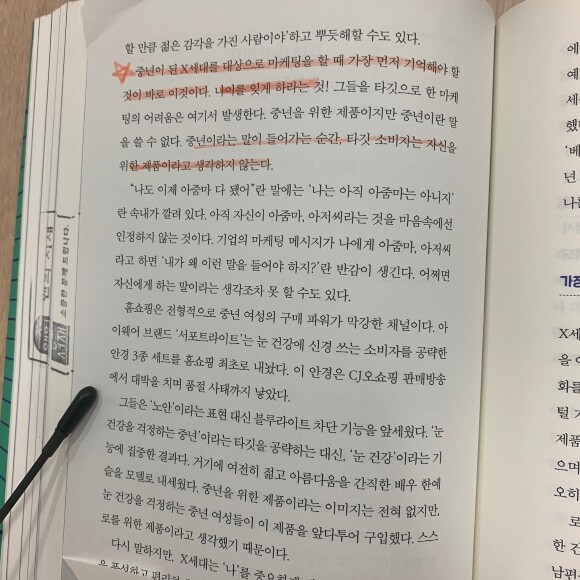 할 만큼 젊은 감각을 가진 사람이야'하고 뿌듯해할 수도 있다.
중년이 된 X세대를 대상으로 마케팅을 할 때 가장 먼저 기억해야 할
것이 바로 이것이다. 나이를 잊게 하라는 것! 그들을 타깃으로 한 마케
팅의 어려움은 여기서 발생한다. 중년을 위한 제품이지만 중년이란 말
을 쓸 수 없다. 중년이라는 말이 들어가는 순간, 타깃 소비자는 자신을
위한 제품이라고 생각하지 않는다.
"나도 이제 아줌마 다 됐어"란 말에는 '나는 아직 아줌마는 아니지'
란 속내가 깔려 있다. 아직 자신이 아줌마, 아저씨라는 것을 마음속에선
인정하지 않는 것이다. 기업의 마케팅 메시지가 나에게 아줌마, 아저씨
라고 하면 '내가 왜 이런 말을 들어야 하지?'란 반감이 생긴다. 어쩌면
자신에게 하는 말이라는 생각조차 못 할 수도 있다.
홈쇼핑은 전형적으로 중년 여성의 구매 파워가 막강한 채널이다. 아
이웨어 브랜드 '서포트라이트'는 눈 건강에 신경 쓰는 소비자를 공략한
안경 3종 세트를 홈쇼핑 최초로 내놨다. 이 안경은 CJ오쇼핑 판매방송
에서 대박을 치며 품절 사태까지 낳았다.
그들은 '노안'이라는 표현 대신 블루라이트 차단 기능을 앞세웠다. '눈
건강을 걱정하는 중년'이라는 타깃을 공략하는 대신, '눈 건강'이라는 기
능에 집중한 결과다. 거기에 여전히 젊고 아름다움을 간직한 배우 한예
슬을 모델로 내세웠다. 중년을 위한 제품이라는 이미지는 전혀 없지만,
눈 건강을 걱정하는 중년 여성들이 이 제품을 앞다투어 구입했다. 스스
로를 위한 제품이라고 생각했기 때문이다.
다시 말하지만, X세대는 '나'를
소중한 함께 드립니다.
에
예
세
했다
'베
년
나를
가장
X세
을
화를
털 
제품
으며
오히
로
한 건
남편